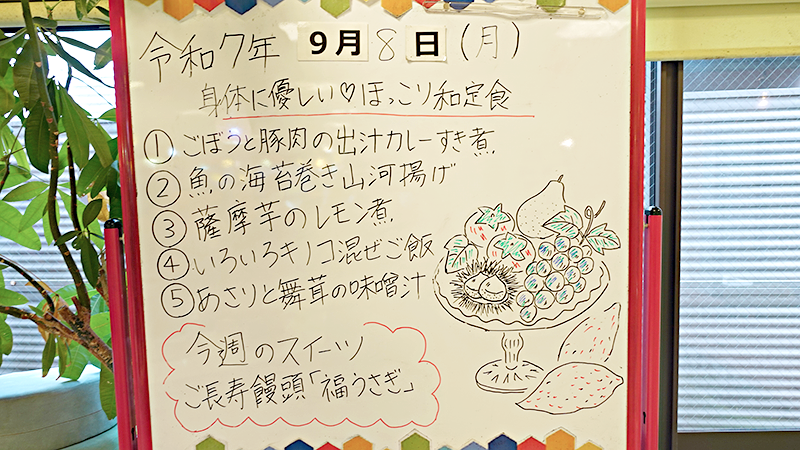 令和7年 9月8日(月)
身体に優しい♡ほっこり和定食
① ごぼうと豚肉の出汁カレーすき煮
② 魚の海苔巻き山河揚げ
③ 薩摩芋のレモン煮
④ いろいろキノコ混ぜご飯
⑤ あさりと舞茸の味噌汁
今週のスイーツ
ご長寿饅頭「福うさぎ」